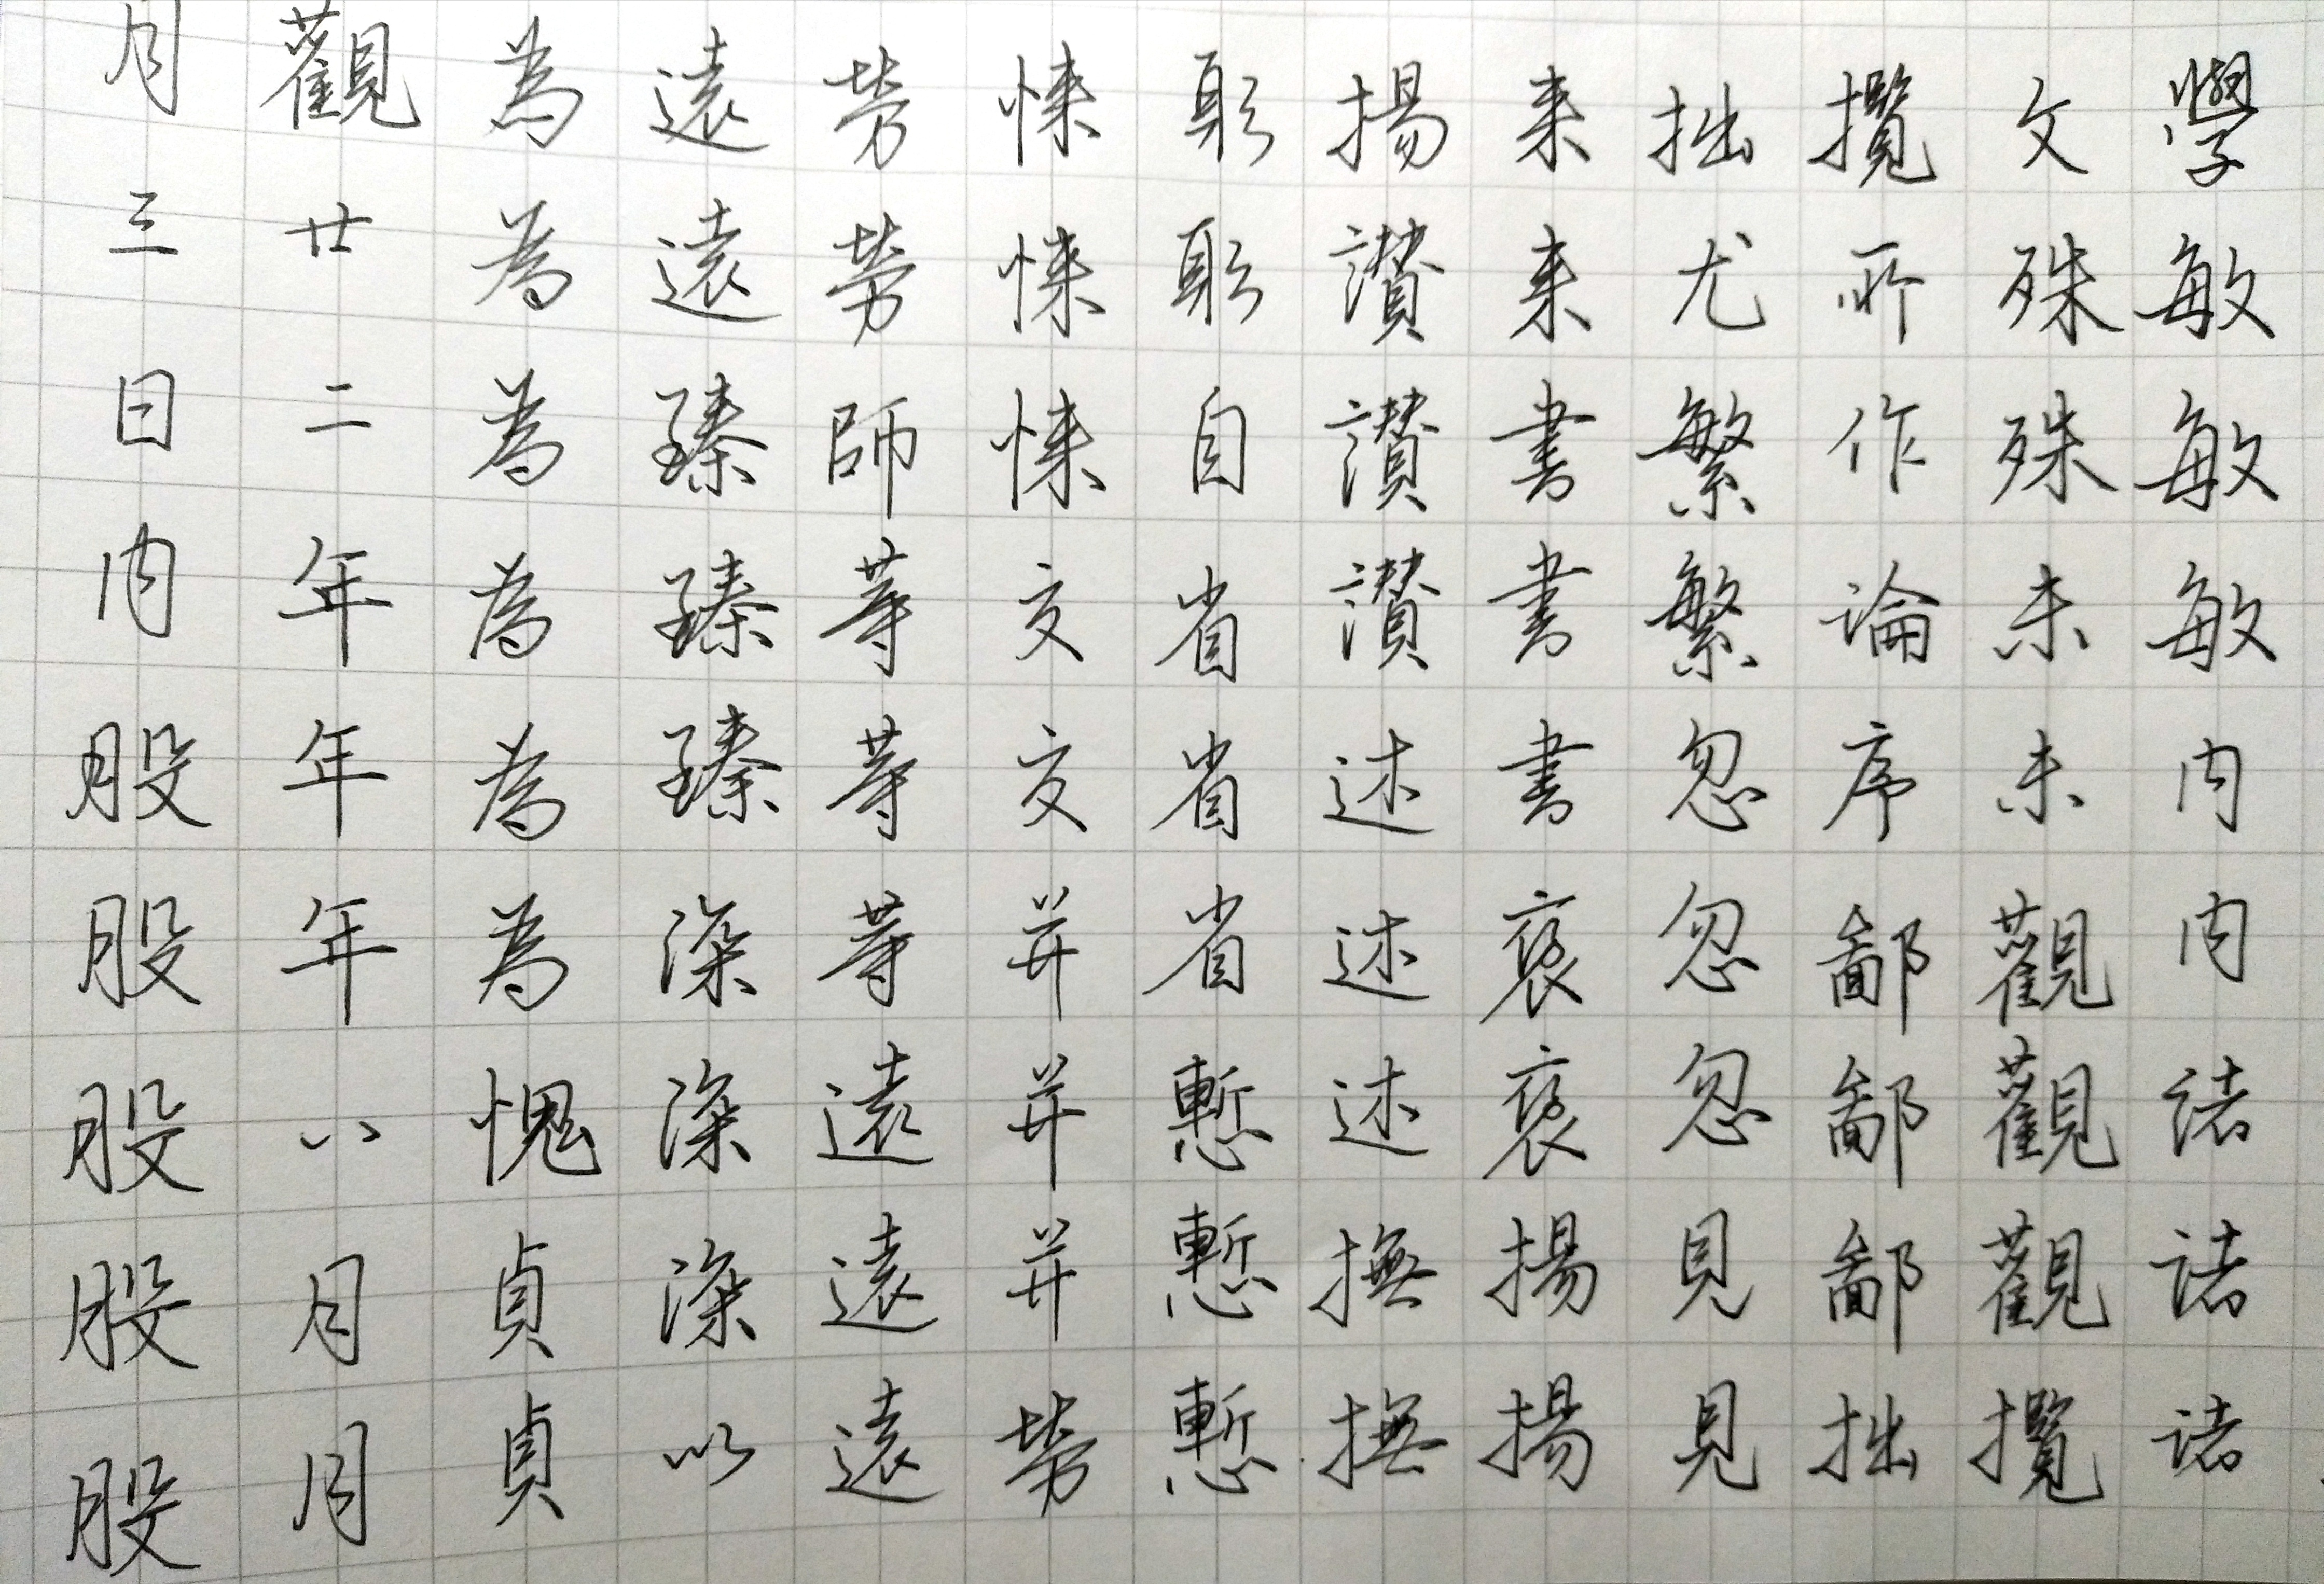 學敏敏敏内内諸諸諸
文殊殊未未觀觀觀攬
攬所作論序鄙鄙鄙拙
拙尤繁繁忽忽忽見見
来来書書書褒褒揚揚
揚讃讃讃述述述撫撫
躬躬自省省省慙慙慙
悚悚悚交交并并并勞
勞勞師等等等遠遠遠
遠遠臻臻臻深深深以
為為為為為為愧貞貞
觀廿二年年年八月月
月三日内股股股股股